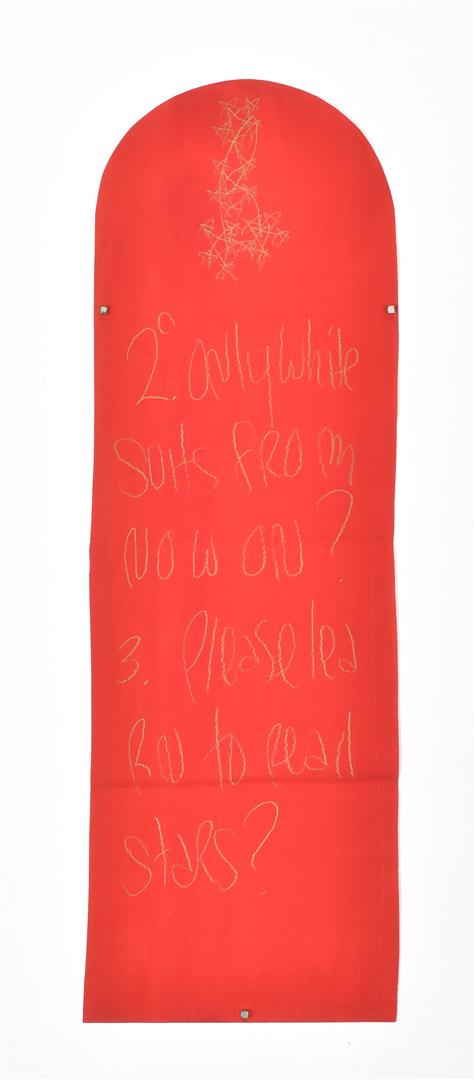 2. only white
suits from
now on?
3. Please lea
rn to read
stars?